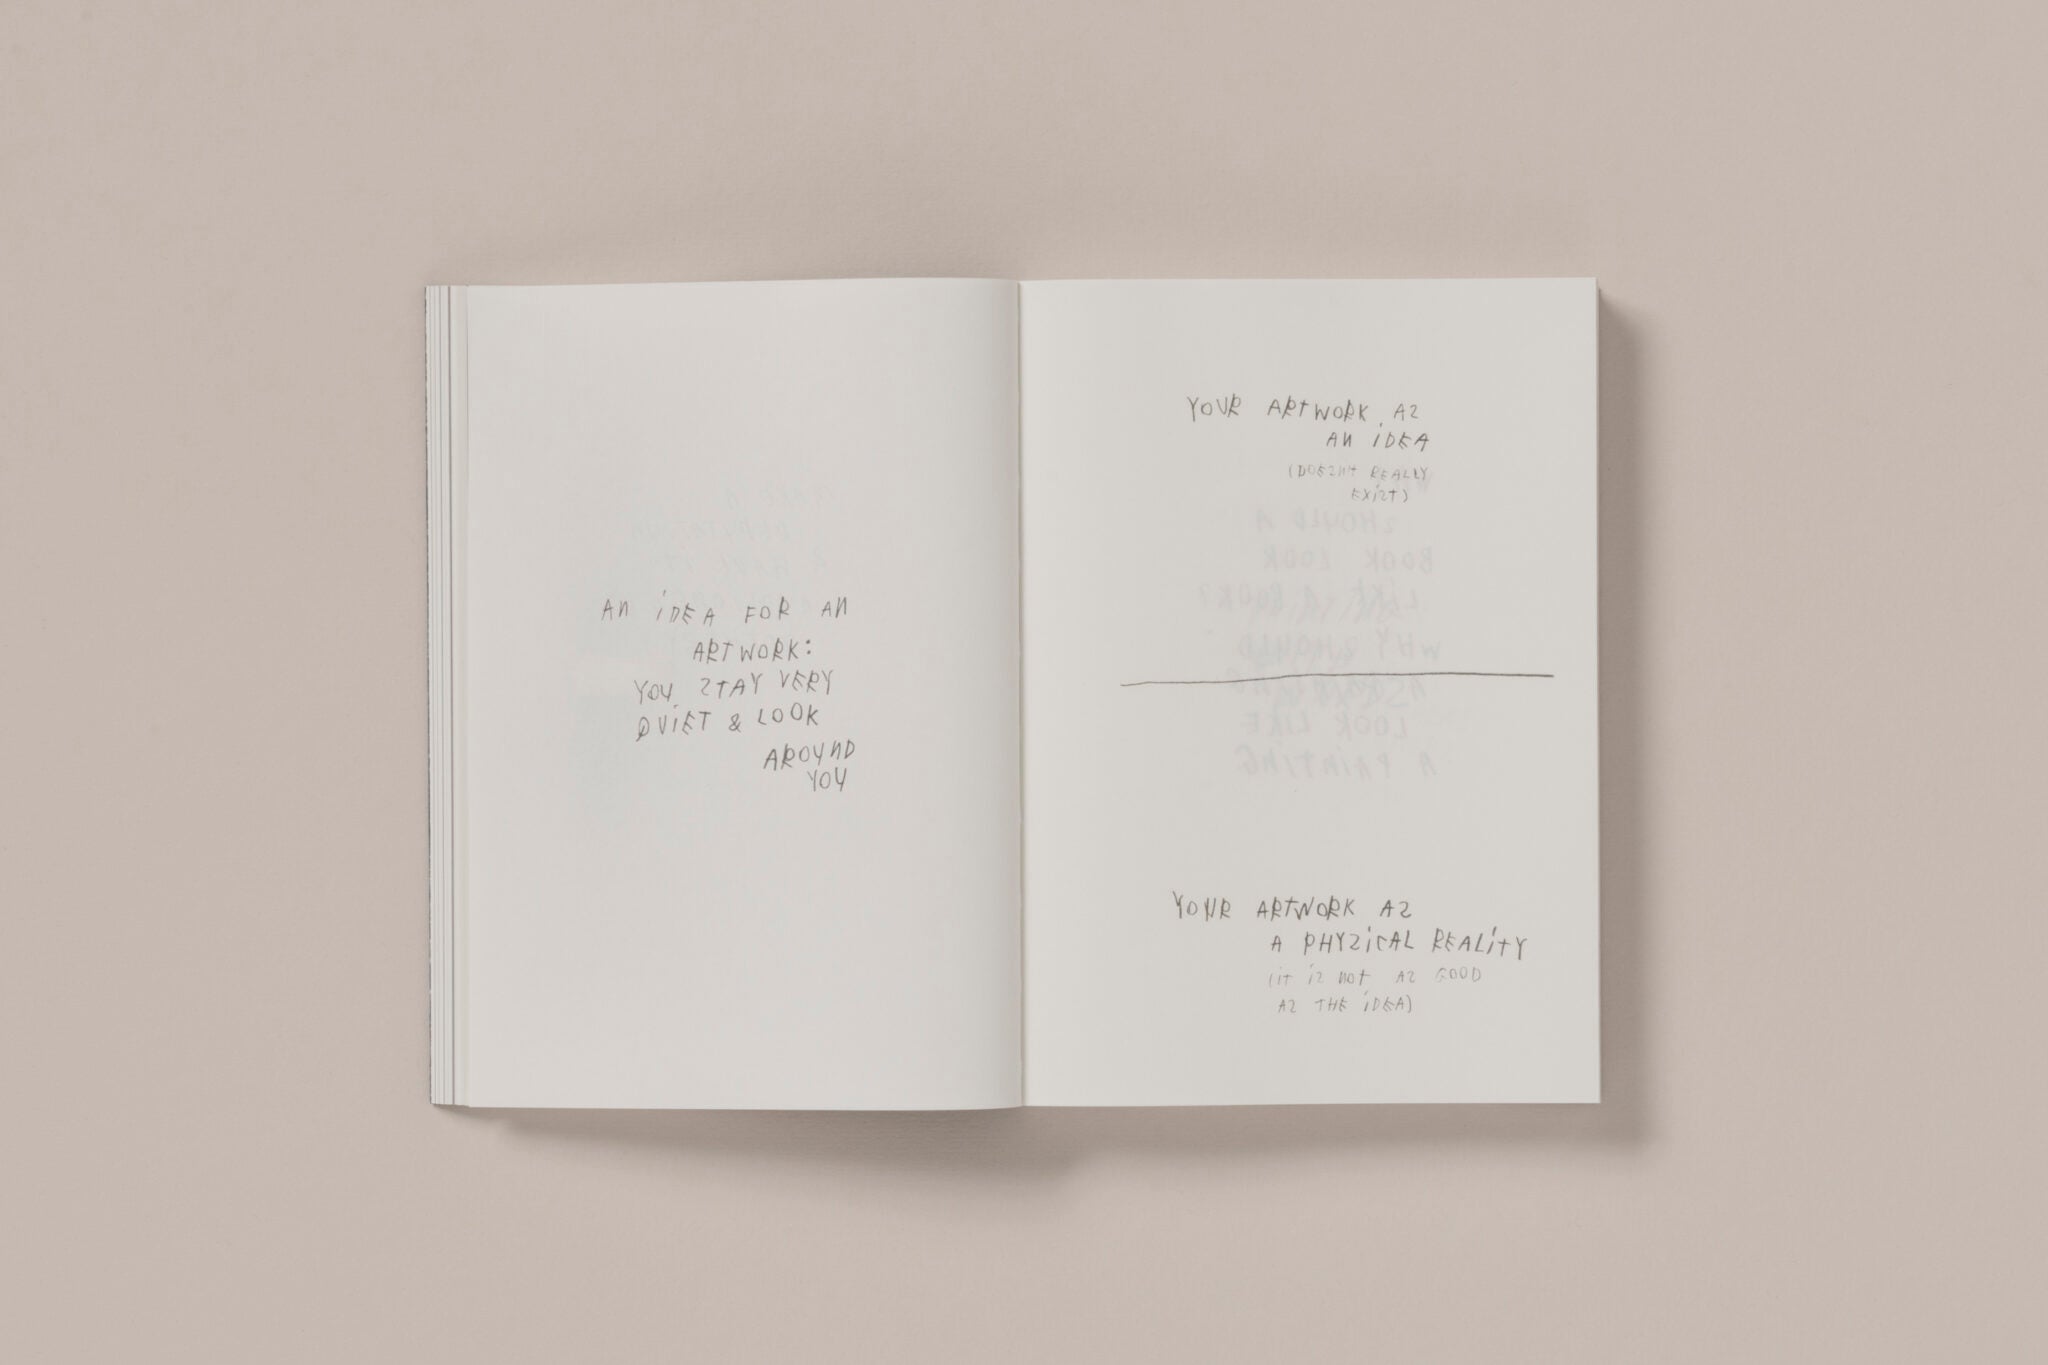 AN iDEA FOR AN
ARTWORK:
YOU STAY VERY
QUiET & LOOK
AROUND
YOU
YOUR ARTWORK AS
AN iDEA
(DOESN'T REALLY
EXiST)
YOUR ARTWORK AS
A PHYSiCAL REALiTY
(iT iS NOT AS GOOD
AS THE iDEA)